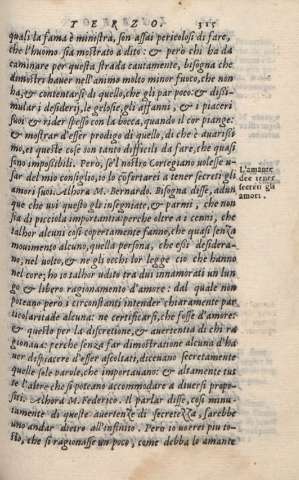 TERZO. 315
quali la fama è ministra, son assai pericolosi di fare,
che l'huomo sia mostrato a dito: & però chi ha da
caminar per questa strada cautamente, bisogna che
dimostri hauer nell'animo molto minor fuoco, che non
ha, & contentarsi di quello, che gli par poco: & dissi-
mular i desiderij, le gelosie, gli affanni, & i piaceri
suoi & rider spesso con la bocca, quando il cor piange:
& mostrar d'esser prodigo di quello, di che è auarissi
mo, et queste cose son tanto difficili da fare, che quasi
sono impossibili. Però, se'l nostro Cortegiano volesse u-
sar del mio consiglio, io cōfortarei a tener secreti gli
amori suoi. Alhora M. Bernardo. Bisogna disse, adun
que che voi questo gli insegniate, & parmi, che non
sia di picciola importantia: perche oltre a i cenni, che
talhor alcuni così copertamente fanno, che quasi senza
mouimento alcuno, quella persona, che essi desidera-
no, nel uolto, & ne gli occhi lor legge ciò che hanno
nel core; ho io talhor udito tra dui innamorati un lun
go & libero ragionamento d'amore: dal quale non
poteano però i circonstanti intender chiaramente par
ticolarità de alcuna: ne certificarsi, che fosse d'amore:
& questo per la discretione, & auertentia di chi ra
gionaua: perche senza far dimostratione alcuna d'ha
uer dispiacere d'esser ascoltati, diceuano secretamente
quelle sole parole, che importauano: & altamente tut
te l'altre che si poteano accommodare a diuersi propo-
siti. Alhora M. Federico. Il parlar disse, così minu-
tamente di queste auertenze di secretezza, sarebbe
uno andar dietro all'infinito. Però io vorrei piu to-
sto, che si ragionasse un poco, come debba lo amante
L'amante
dee tener
secreti gli
amori.